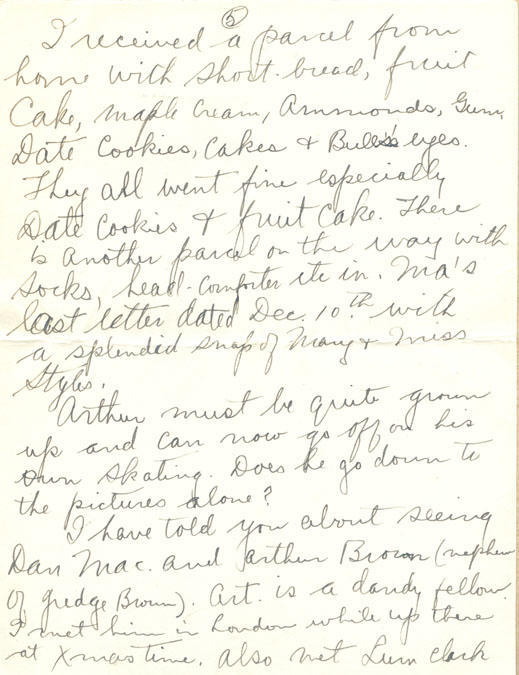 5
I received a parcel from
home with short-bread, fruit
Cake, maple Cream, Ammonds, Gum,
Date Cookies, Cakes + Bulls eyes.
They all went fine especially
Date Cookies + fruit Cake. There
is another parcel on the way with
socks, head-comforter etc in. Ma's
last letter dated Dec. 10th with
a splendid snap of Mary + Miss
Styles.
Arthur must be quite grown
up and can now go off on his
own skating. Does he go down to
the pictures alone?
I have told you about seeing
Dan Mac. and Arthur Brown (nephew
of Brown). Art. is a dandy fellow.
I met him in London while up there
at Xmas time. Also met Lum Clark